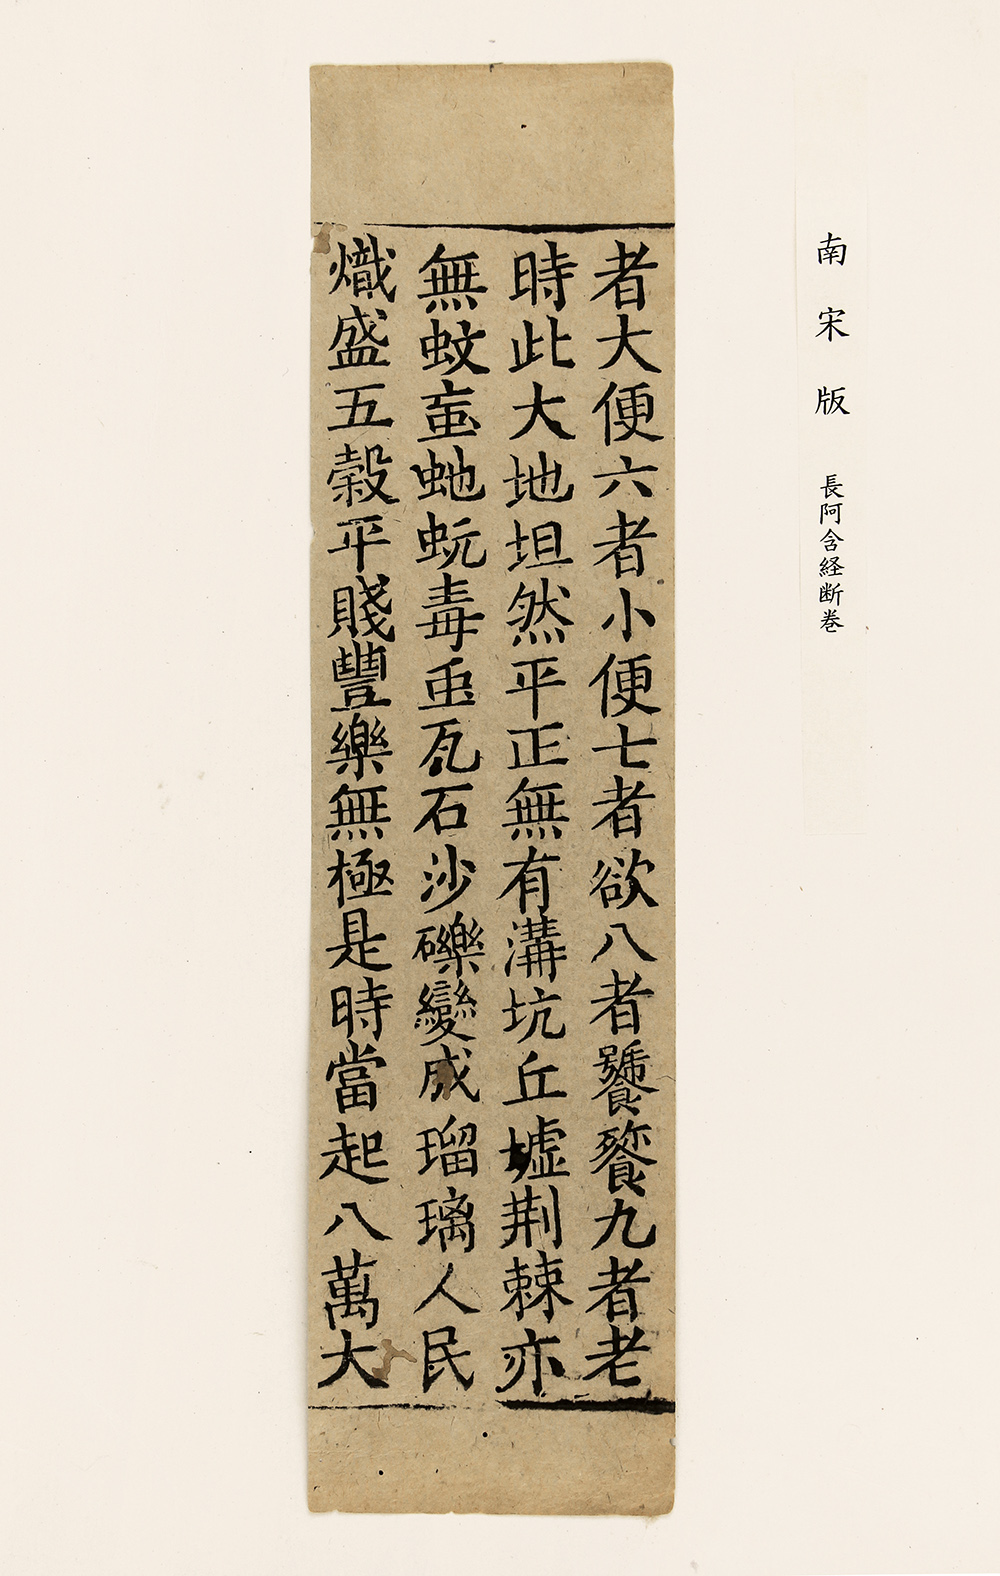 南宋版 長阿含経断巻
者大便六者小便七者欲八者饕餮九者老
時此大地坦然平正無有溝坑丘墟荆棘亦
無蚊䖟虵蚖毒䖝瓦石沙礫變成瑠璃人民
熾盛五穀平賤豐樂無極是時當起八萬大